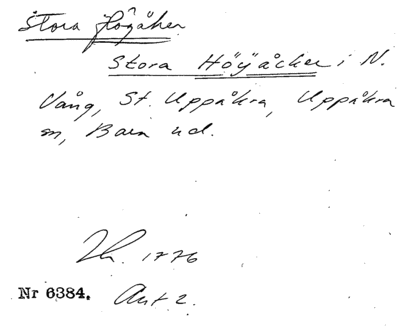 Stora Högåker
Stora Höÿåcker i N.
Vång, St. Uppåkra, Uppåkra
sn, Bara hd.
1776
Nr 6384. Akt 2.